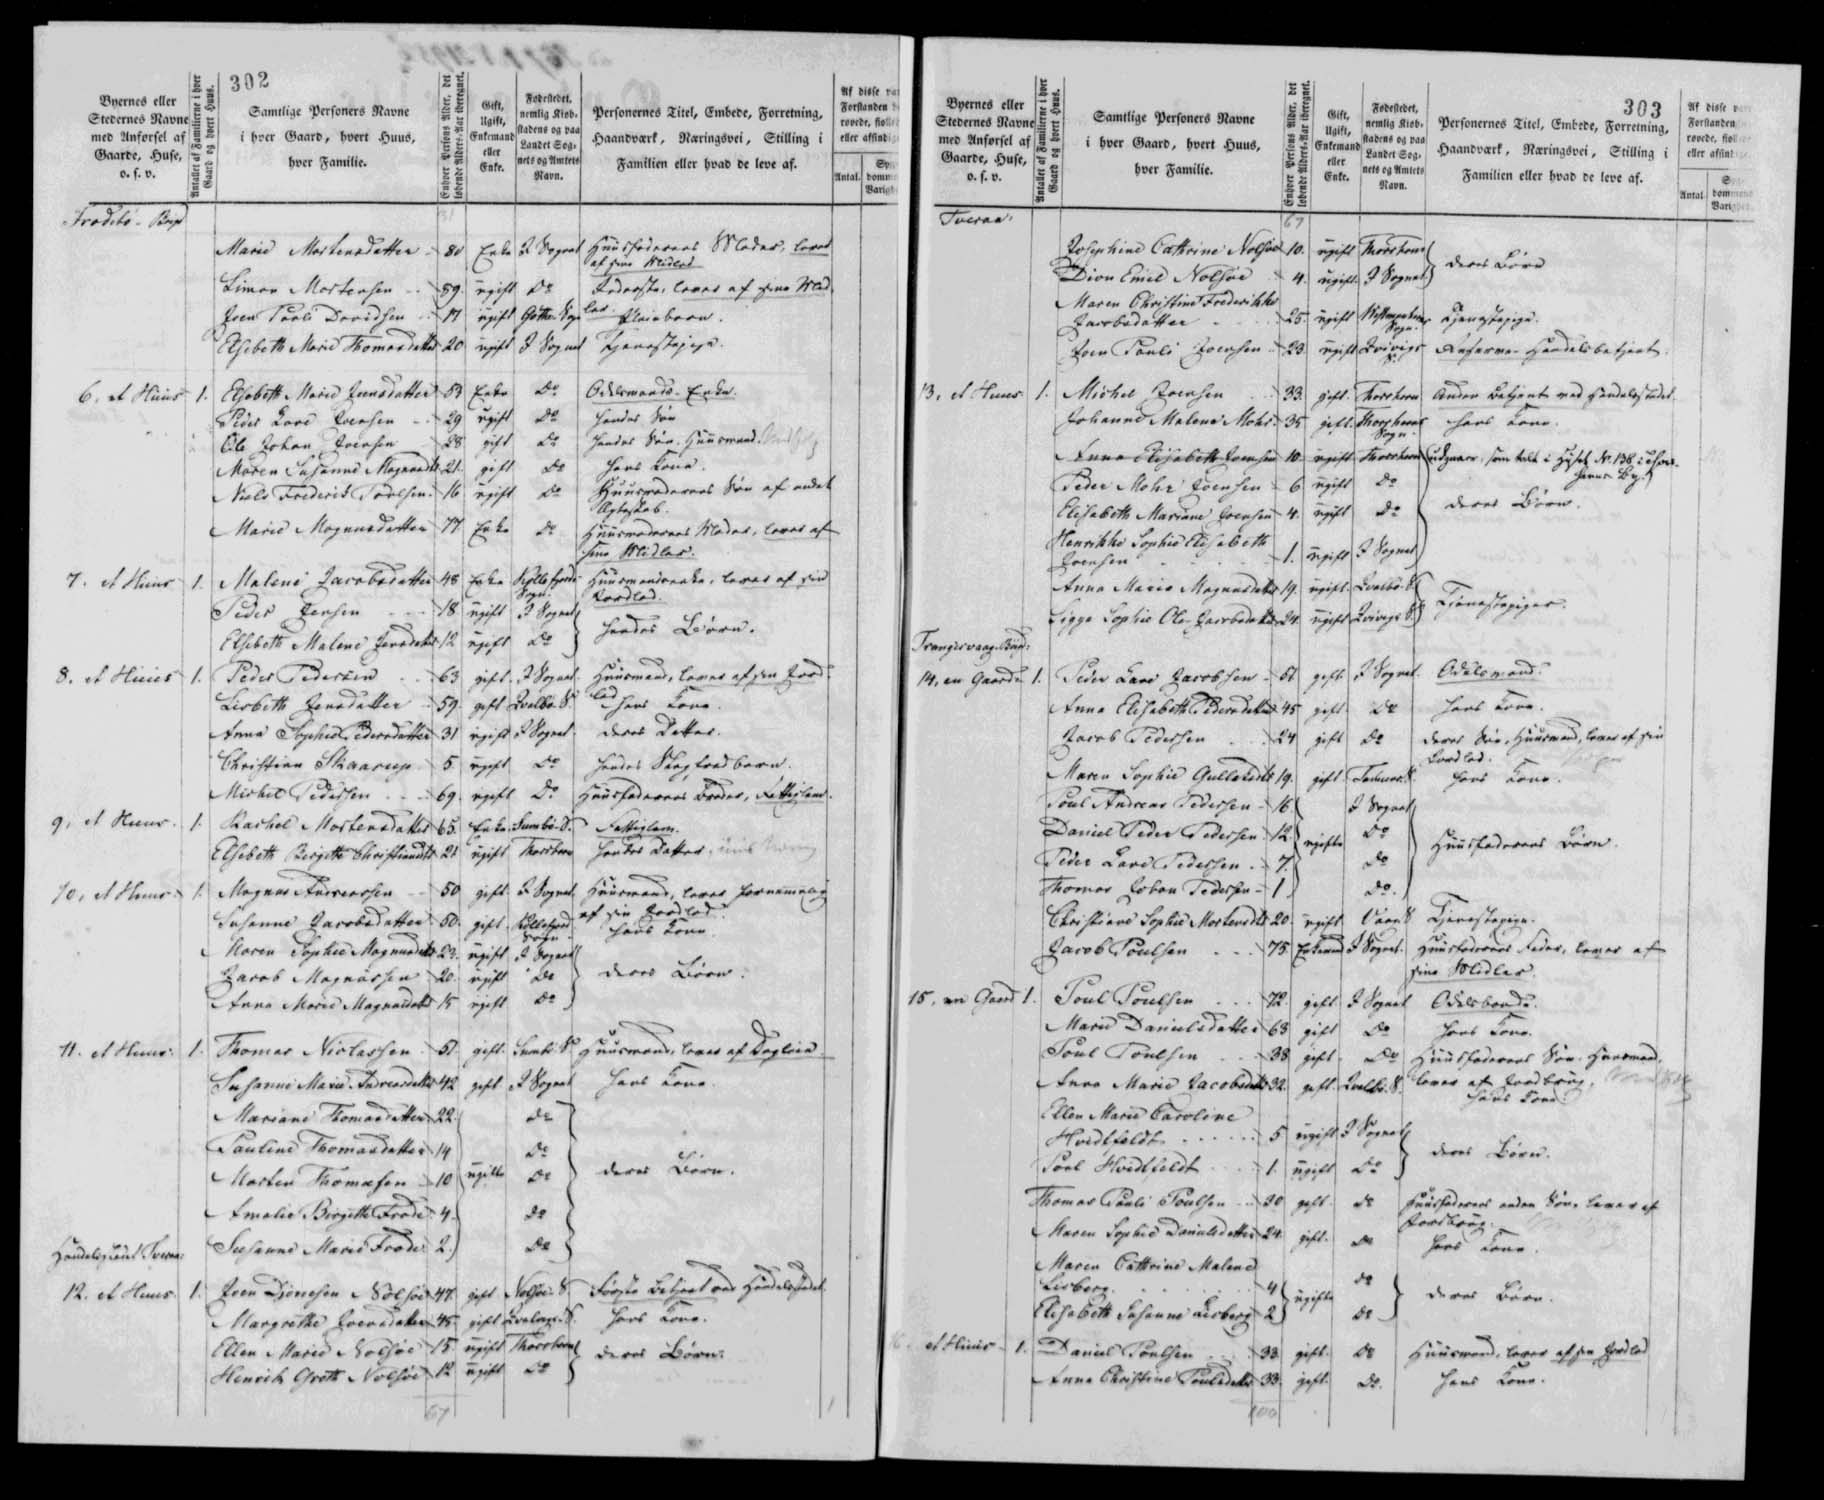 302
Byernes eller
Stedernes Navne
med Anførsel af
Gaarde, Huse,
o. s. v.
Antallet af Familierne i hver
Gaard og hvert Huus.
Samtlige Personers Navne
i hver Gaard, hvert Huus,
hver Familie.
Enhver Persons Alder, det
løbende Alders-Aar iberegnet.
Gift,
Ugift,
Enkemand
eller
Enke.
Fødestedet,
nemlig Kiøb-
stadens og paa
Landet Sog-
nets og Amtets
Navn.
Personernes Titel, Embede, Forretning,
Haandværk, Næringsvei, Stilling i
Familien eller hvad de leve af.
Af disse
Forstanden
eller
Antal.
Frodebø
Marie Mortensdatter 80 Enke I Sognet Huusfaderens Moder, lever
af sine Midler
Simon Mortensen 59 ugift Do
Joen Pouli Davidsen 17 ugift Pleiebarn.
Elsebeth Marie Thomasdatter 20 ugift I Sognet Tjenestepige.
6, et Huus 1. Elsebeth Marie Joensdatter 53 Enke Do Odelsmands Enke.
Peder Lave Joensen 29 ugift Do hendes Søn
Ole Johan Joensen 28 gift Do hendes Søn, Huusmand
Maren Susanne Magnusdtr 21. gift Do hans Kone.
Niels Frederik Poulsen 16 ugift Do Huusmoderens Søn af andet
Ægteskab.
Marie Magnusdatter 77 Enke Do Huusmoderens Moder, lever af
sine Midler.
7. et Huus 1. Malene Jacobsdatter 48 Enke Kollefjords Sogn. Huusmandsenke, lever af sin
Jordlod.
Peder Jensen 18. ugift I Sognet
Elsebeth Malene Jensdatter 12 ugift Do hendes Børn.
8. et Huus 1. Peder Pedersen 63 gift. I Sognet Huusmand, lever af sin Jord-
lod
Lisbeth Jensdatter 59. gift Qvalbø S. hans Kone.
Anna Sophie Pedersdatter 31 ugift I Sognet deres Datter.
Christian Skaarup 5 ugift Do hendes Slegfredbarn.
Michel Pedersen 69. ugift Do Huusfaderens Broder, Fattiglem.
9, et Huus. 1. Rachel Mortensdatter 65. Enke. Sumbø S. Fattiglem.
Elsebeth Birgitte Christiansdtr 21 ugift Thorshavn hendes Datter
10, et Huus. 1. Magnus Andreassen 50 gift. I Sognet Huusmand, lever fornemmelig
af sin Jordlod.
Susanne Jacobsdatter 50. gift. Kollefjord Sogn hans Kone
Maren Sophie Magnusdatter 23. ugift I Sognet
Jacob Magnussen 20. ugift Do deres Børn.
Anna Marie Magnusdatter 15 ugift Do
11. et Huus. 1. Thomas Niclassen 51. gift. Sumbø S. Huusmand, lever af Dagleie.
Susanne Marie Andreasdatter 42 gift I Sognet hans Kone.
Mariane Thomasdatter 22. Do
Pauline Thomasdatter 14 Do
Morten Thomasen 10 ugifte Do deres Børn.
Amalie Birgitte Frode 4. Do
Susanne Marie Frode 2. Do
Handelsstedet Tveraa:
12. et Huus. 1. Joen Djonesen Nolsøe 47. gift Nolsøe S. Første Betjent ved Handelsstedet.
Margrethe Joensdatter 45. gift hans Kone.
Ellen Marie Nolsøe 15 ugift Thorshavn
Henrik Groth Nolsøe 12 ugift Do deres Børn.
67
303
Byernes eller
Stedernes Navne
med Anførsel af
Gaarde, Huse,
o. s. v.
Antallet af Familierne i hver
Gaard og hvert Huus.
Samtlige Personers Navne
i hver Gaard, hvert Huus,
hver Familie.
Enhver Persons Alder, det
løbende Alders-Aar iberegnet.
Gift,
Ugift,
Enkemand
eller
Enke.
Fødestedet,
nemlig Kiøb-
stadens og paa
Landet Sog-
nets og Amtets
Navn.
Personernes Titel, Embede, Forretning,
Haandværk, Næringsvei, Stilling i
Familien eller hvad de leve af.
Af disse
Forstanden
eller
Antal.
Tveraa.
67
Josephine Cathrine Nolsøe 10. ugift Thorshavn
Dion Emiel Nolsøe 4. ugift. I Sognet deres Børn
Maren Christine Frederikke
Jacobsdatter 25. ugift Sogn. Tjenestepige.
Joen Pouli Joensen 23. ugift Qvivigs S. Handelsbetjent.
13, et Huus. 1. Michel Joensen 33. gift. Thorshavn Anden Betjent ved Handelsstedet.
Johanne Malene Mohr 35 gift. Thorshavns Sogn. hans Kone.
Anna Elisabeth Joensen 10. ugift Thorshavn
Peder Mohr Joensen 6 ugift Do
Elisabeth Mariane Joensen 4. ugift Do deres Børn.
Henrikke Sophie Elisabeth
Joensen 1. ugift I Sognet
Anna Marie Magnusdatter 19. ugift. Qvalbø S.
Sigga Sophie Ole-Jacobsdatter 24. ugift Qvivigs S. Tjenestepiger.
Trangisvaag
14, en Gaard 1. Peder Lave Jacobsen 51 gift. I Sognet Odelsmand.
Anna Elisabeth Pedersdatter 45 gift. Do hans Kone.
Jacob Pedersen 24 gift Do deres Søn, Huusmand, lever af sin
Jordlod.
Maren Sophie 19. gift hans Kone.
Poul Andreas Pedersen 16. I Sognet
Daniel Peder Pedersen 12. ugifte Do
Peder Lave Pedersen 7. Do Huusfaderens Børn.
Thomas Johan Pedersen 1 Do.
Christiane Sophie Mortensdtr 20. ugift Tjenestepige.
Jacob Poulsen 75 Enkemand I Sognet. Huusfaderens Fader, lever af
sine Midler
15, en Gaard 1. Poul Poulsen 72. gift. I Sognet Odelsbonde.
Marie Danielsdatter 63 gift Do hans Kone.
Poul Poulsen 38 gift Do Huusfaderens Søn. Huusmand,
lever af Jordbrug,
Anna Marie Jacobsdatter 32. gift. Qvalbø S. hans Kone
Ellen Marie Caroline
Hvidtfeldt 5 ugift I Sognet
Poul Hvidtfeldt 1. ugift Do deres Børn.
Thomas Pouli Poulsen 30 gift. Do Huusfaderens anden Søn, lever af
Jordbrug.
Maren Sophie Danielsdatter 24. gift. Do hans Kone.
Maren Cathrine Malene
Lisberg 4 ugifte Do
Elisabeth Susanne Lisberg 2 Do deres Børn.
et Huus 1. Daniel Poulsen 33 gift. Do Huusmand, lever af sin Jordlod
Anna Christine Poulsdatter 33. gift. Do. hans Kone.
100